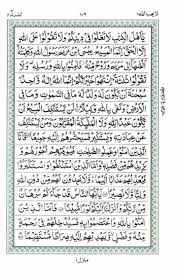 لا يحب الله ٦
١٠٦
النساء ٤
يٰٓاَهْلَ الْكِتٰبِ لَا تَغْلُوْا فِيْ دِيْنِكُمْ وَلَا تَقُوْلُوْا عَلَى اللّٰهِ
اِلَّا الْحَقَّ ؕ اِنَّمَا الْمَسِيْحُ عِيْسَى ابْنُ مَرْيَمَ رَسُوْلُ اللّٰهِ وَكَلِمَتُهٗ ۚ
اَلْقٰىهَآ اِلٰى مَرْيَمَ وَرُوْحٌ مِّنْهُ ۫ فَاٰمِنُوْا بِاللّٰهِ وَرُسُلِهٖ ۚ وَلَا
تَقُوْلُوْا ثَلٰثَةٌ ؕ اِنْتَهُوْا خَيْرًا لَّكُمْ ؕ اِنَّمَا اللّٰهُ اِلٰهٌ وَّاحِدٌ ؕ
سُبْحٰنَهٗٓ اَنْ يَّكُوْنَ لَهٗ وَلَدٌ ۘ لَهٗ مَا فِي السَّمٰوٰتِ وَمَا
فِي الْاَرْضِ ؕ وَكَفٰى بِاللّٰهِ وَكِيْلًا ۝ لَنْ يَّسْتَنْكِفَ الْمَسِيْحُ اَنْ
يَّكُوْنَ عَبْدًا لِّلّٰهِ وَلَا الْمَلٰٓئِكَةُ الْمُقَرَّبُوْنَ ؕ وَمَنْ يَّسْتَنْكِفْ
عَنْ عِبَادَتِهٖ وَيَسْتَكْبِرْ فَسَيَحْشُرُهُمْ اِلَيْهِ جَمِيْعًا ۝ فَاَمَّا الَّذِيْنَ
اٰمَنُوْا وَعَمِلُوا الصّٰلِحٰتِ فَيُوَفِّيْهِمْ اُجُوْرَهُمْ وَيَزِيْدُهُمْ
مِّنْ فَضْلِهٖ ۚ وَاَمَّا الَّذِيْنَ اسْتَنْكَفُوْا وَاسْتَكْبَرُوْا
فَيُعَذِّبُهُمْ عَذَابًا اَلِيْمًا ۙ وَّلَا يَجِدُوْنَ لَهُمْ مِّنْ دُوْنِ اللّٰهِ
وَلِيًّا وَّلَا نَصِيْرًا ۝ يٰٓاَيُّهَا النَّاسُ قَدْ جَآءَكُمْ بُرْهَانٌ
مِّنْ رَّبِّكُمْ وَاَنْزَلْنَآ اِلَيْكُمْ نُوْرًا مُّبِيْنًا ۝ فَاَمَّا الَّذِيْنَ
اٰمَنُوْا بِاللّٰهِ وَاعْتَصَمُوْا بِهٖ فَسَيُدْخِلُهُمْ فِيْ رَحْمَةٍ
مِّنْهُ وَفَضْلٍ ۙ وَّيَهْدِيْهِمْ اِلَيْهِ صِرَاطًا مُّسْتَقِيْمًا ۝
منزل ١